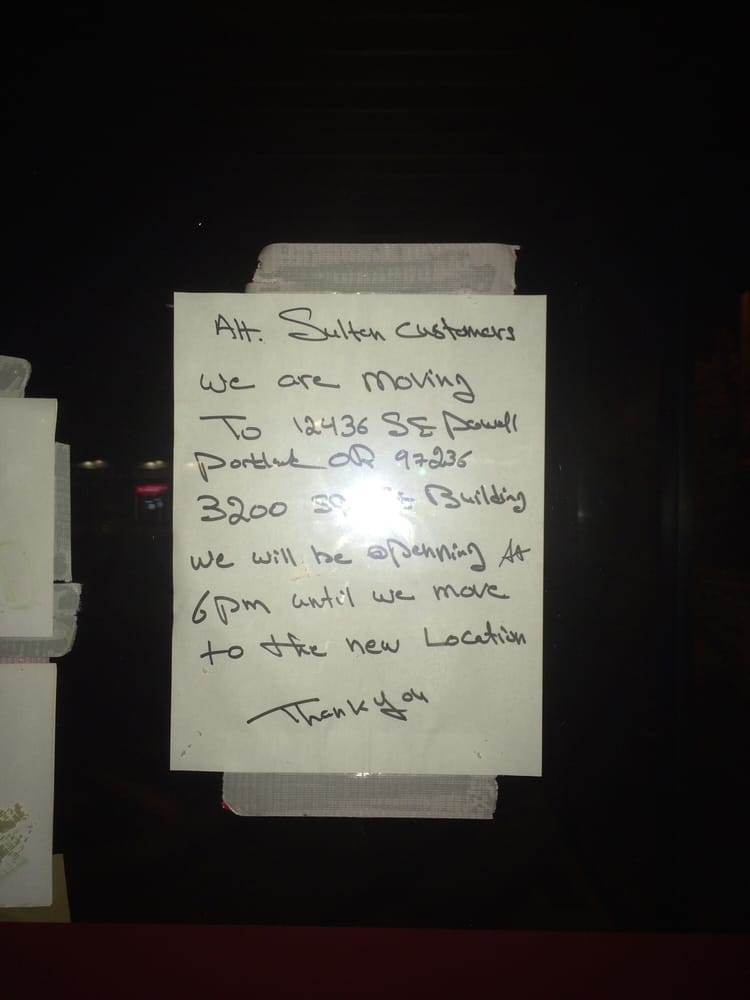 Att. Sultan Customers
we are moving
To 12436 SE Powell
Portland OR 97236
3200 Building
we will be openning At
6pm until we move
to the new Location
Thank you